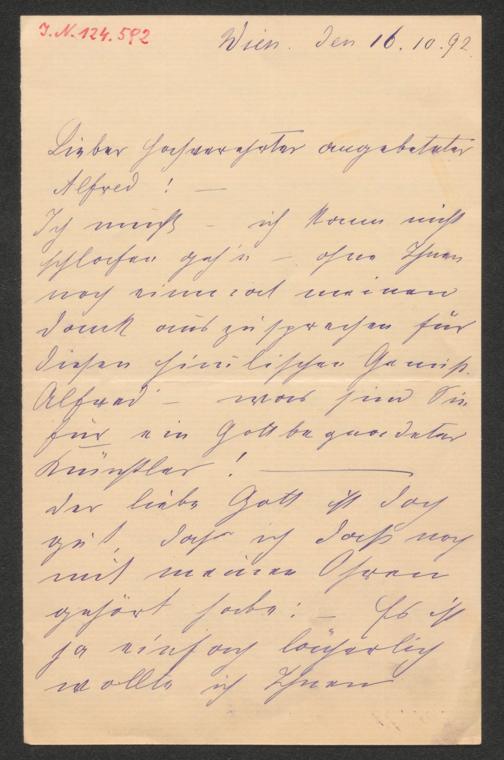 J.N. 124.592
Wien. den 16.10.92.
Lieber hochverehrter angebeteter
Alfred! —
Ich muß – ich kann nicht
schlafen geh'n – ohne Ihnen
noch einmal meinen
Dank auszusprechen für
diesen himlischen Genuß.
Alfred – was sind Sie
für ein Gottbegnadeter
Künstler! —
Der liebe Gott ist doch
gut, daß ich daß noch
mit meinen Ohren
gehört habe: – Es ist
ja einfach lächerlich
wollte ich Ihnen